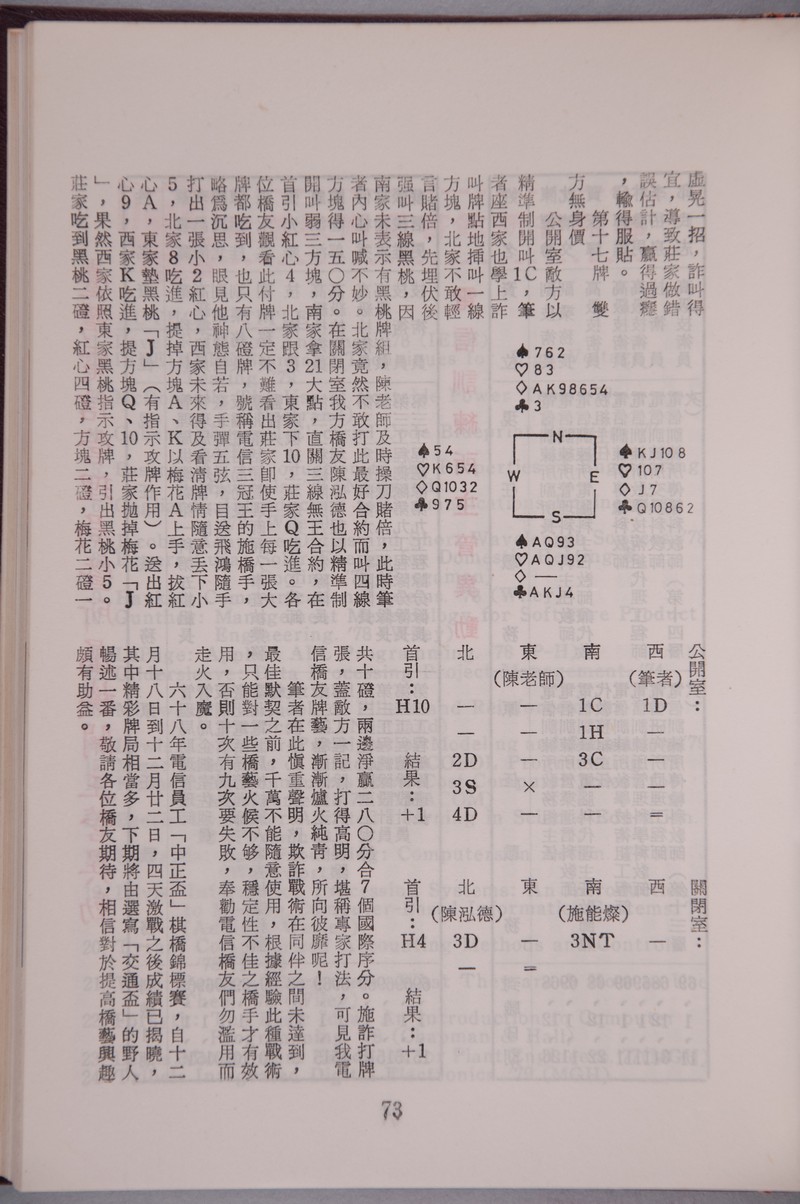 虛晃一招，詐叫得
宜，導致莊家做錯
誤估計，贏得過癮
，輸得服貼。
第十七牌　雙
方無身價
公開室敵方以
精準制開叫1C，筆
者座西家也學上詐
叫牌點地揷叫一線
方塊，北家不敢輕
言賭倍，先埋伏後
强叫三線黑桃，因
南家未表示有黑桃牌組，陳老師及時操刀賭倍，此時筆
者內心叫喊不妙。北家竟然不敢打此最好合約而叫四線
方塊得一五〇分。在關閉室我方橋友陳泓德也以精準制
開叫弱三方塊，南家拿21大點，直關三線無王合約，在
首引小紅心4，北家跟3，東家下10，莊家Q吃進。各
位橋友觀看此付牌一定不難看出莊家卽使手上每一張大
牌都吃到，也只有八磴牌，號稱電信三冠王的施橋手，
略爲沉思，眼見他神態自若，手彈五弦，目送飛鴻隨手
打出一張小2紅心，西家未來得及看淸牌情隨意丟下小
5，北家8吃進，提掉方塊A、K以梅花A上手，拔紅
心A，東家墊黑桃「J」（有指示攻牌作用）。送出紅
心9，西家K吃進，提方塊Q、10，莊家拋掉梅花「J
」，果然西家依照東家黑桃指示攻牌，引出黑桃小5。
莊家吃到黑桃二磴，紅心四磴，方塊二磴，梅花二磴一
♠762
♡83
◇AK98654
♣3
♠54
♡K654
◇Q1032
♣975
N
W
E
S
♠KJ108
♡107
◇J7
♣Q10862
♠AQ93
♡AQJ92
◇—
♣AKJ4
公開室：
西　南　東　北
（筆者）　（陳老師）
1D　1C　—　—
—　1H　—　—
—　3C　—　2D
—　—　×　3S
=　—　—　4D
首引：H10　結果：+1
關閉室：
西　南　東　北
（施能燦）　（陳泓德）
—　3NT　—　3D
=　—
首引：H4　結果：+1
共十磴，兩邊淨贏二八〇分合7個國際序分。施詐打牌
張，蓋敵方一記，打得高明，堪稱專家打法，可見我電
信橋友牌藝，漸漸爐火純靑，所向彼靡呢！
筆者在此愼重聲明，欺詐戰術在同伴之間未達到，
最佳默契之前，千萬不能隨意使用，根據經驗此種戰術
，只能對一些橋藝火候不够，穩定性不佳之橋手才有效
用，否則十次有九次要失敗，奉勸電信橋友們勿濫用而
走火入魔。
六十八年電信員工「中正盃」棋橋錦標賽，自十二
月十八日到十二月廿二日，四天激戰之後成績已揭曉，
其中精彩牌局相當多，下期將由選寫「交通盃」的野人
暢述一番，敬請各位橋友期待，相信對於提高橋藝興趣
頗有助益。
73